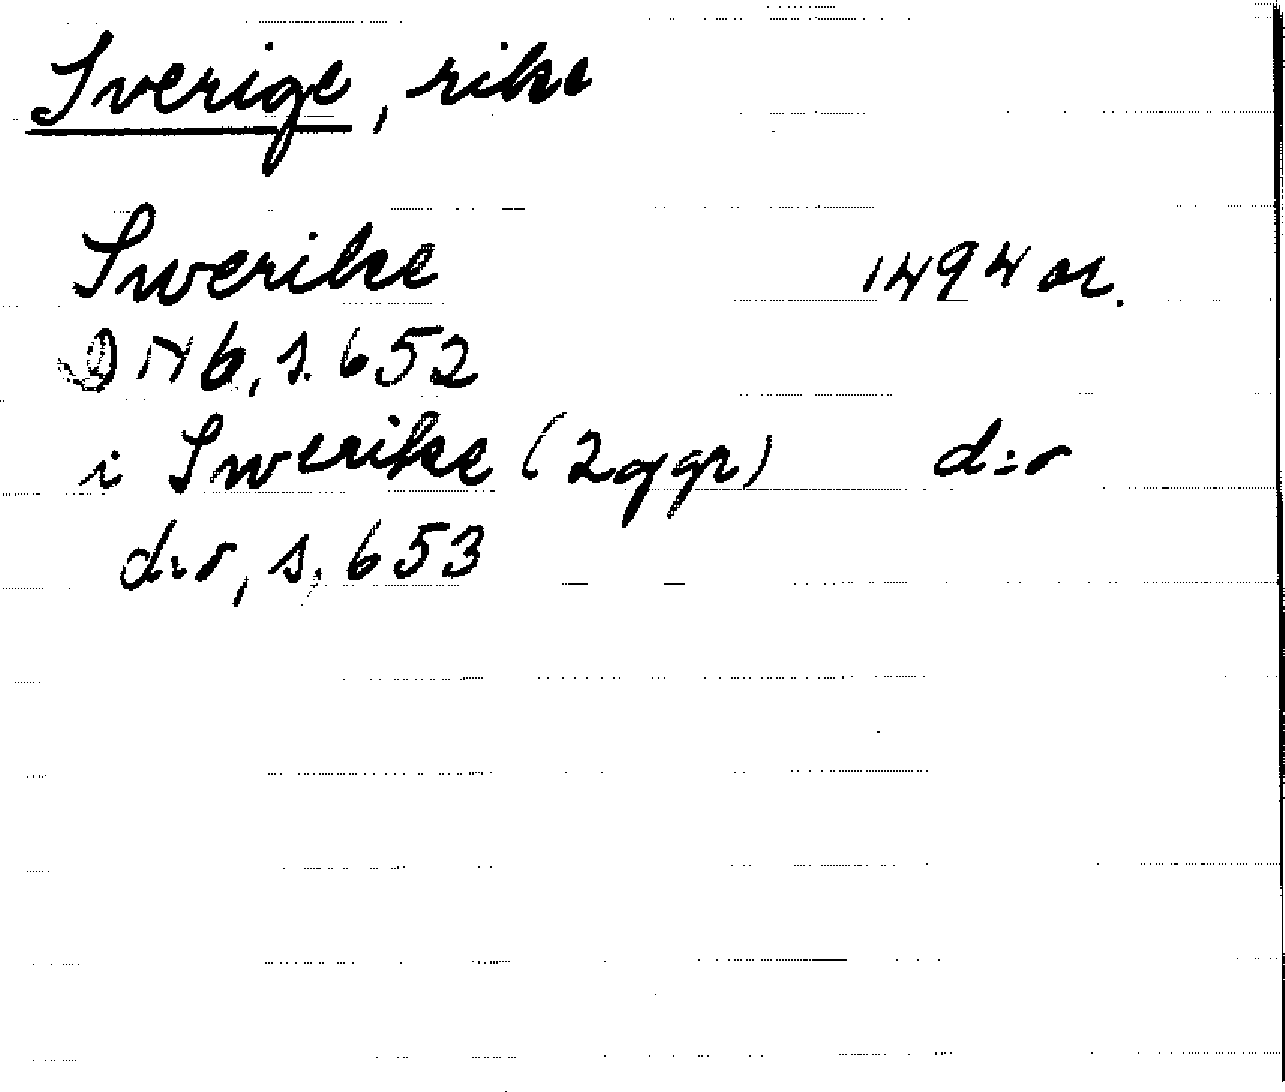 Sverige, rike
Swerike 1494 or.
DN 6, s. 652
i Swerike (2 ggr) d:o
d:o, s. 653